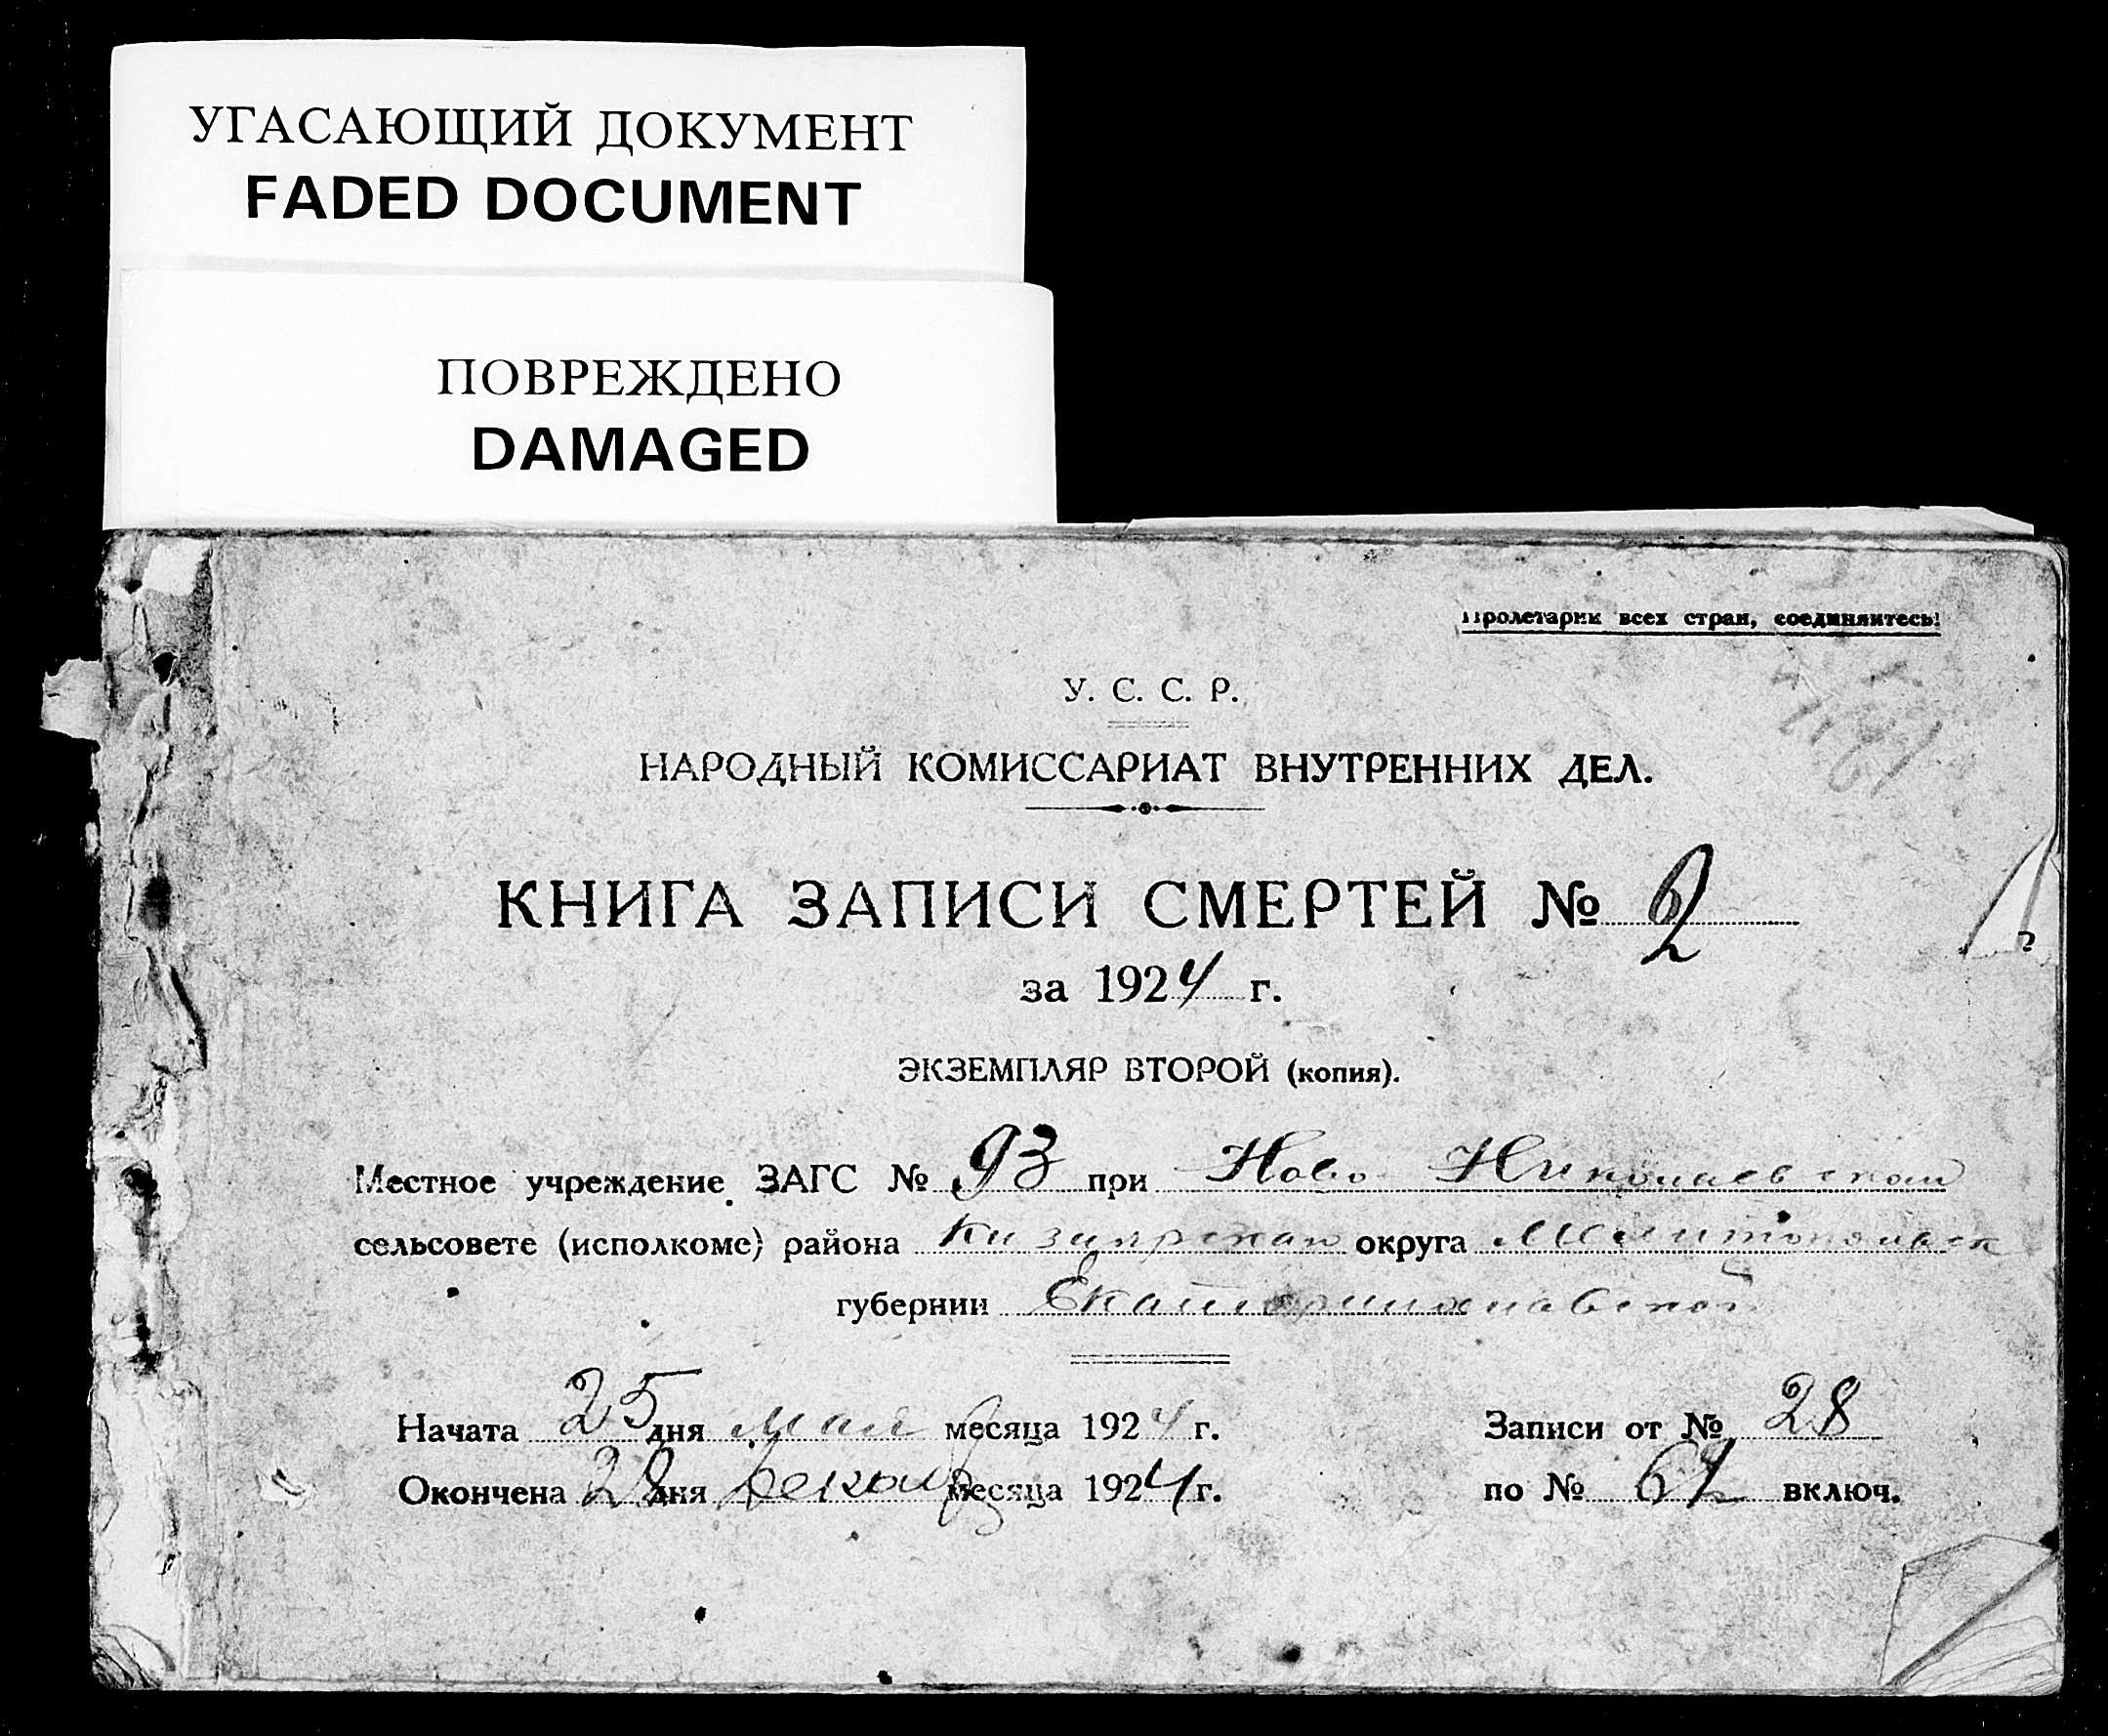 УГАСАЮЩИЙ ДОКУМЕНТ
FADED DOCUMENT
ПОВРЕЖДЕНО
DAMAGED
Пролетарии всех стран, соединяйтесь!
У. С. С. Р.
НАРОДНЫЙ КОМИССАРИАТ ВНУТРЕННИХ ДЕЛ.
КНИГА ЗАПИСИ СМЕРТЕЙ № 2
за 1924 г.
ЭКЗЕМПЛЯР ВТОРОЙ (копия).
Местное учреждение ЗАГС № 93 при Ново Николаевском
сельсовете (исполкоме) района Кизиярскаго округа Мелитопольск
губернии Екатеринославской
Начата 25 дня Мая месяца 1924 г. Записи от № 28
Окончена 28 дня Декабр месяца 1924 г. по № включ.